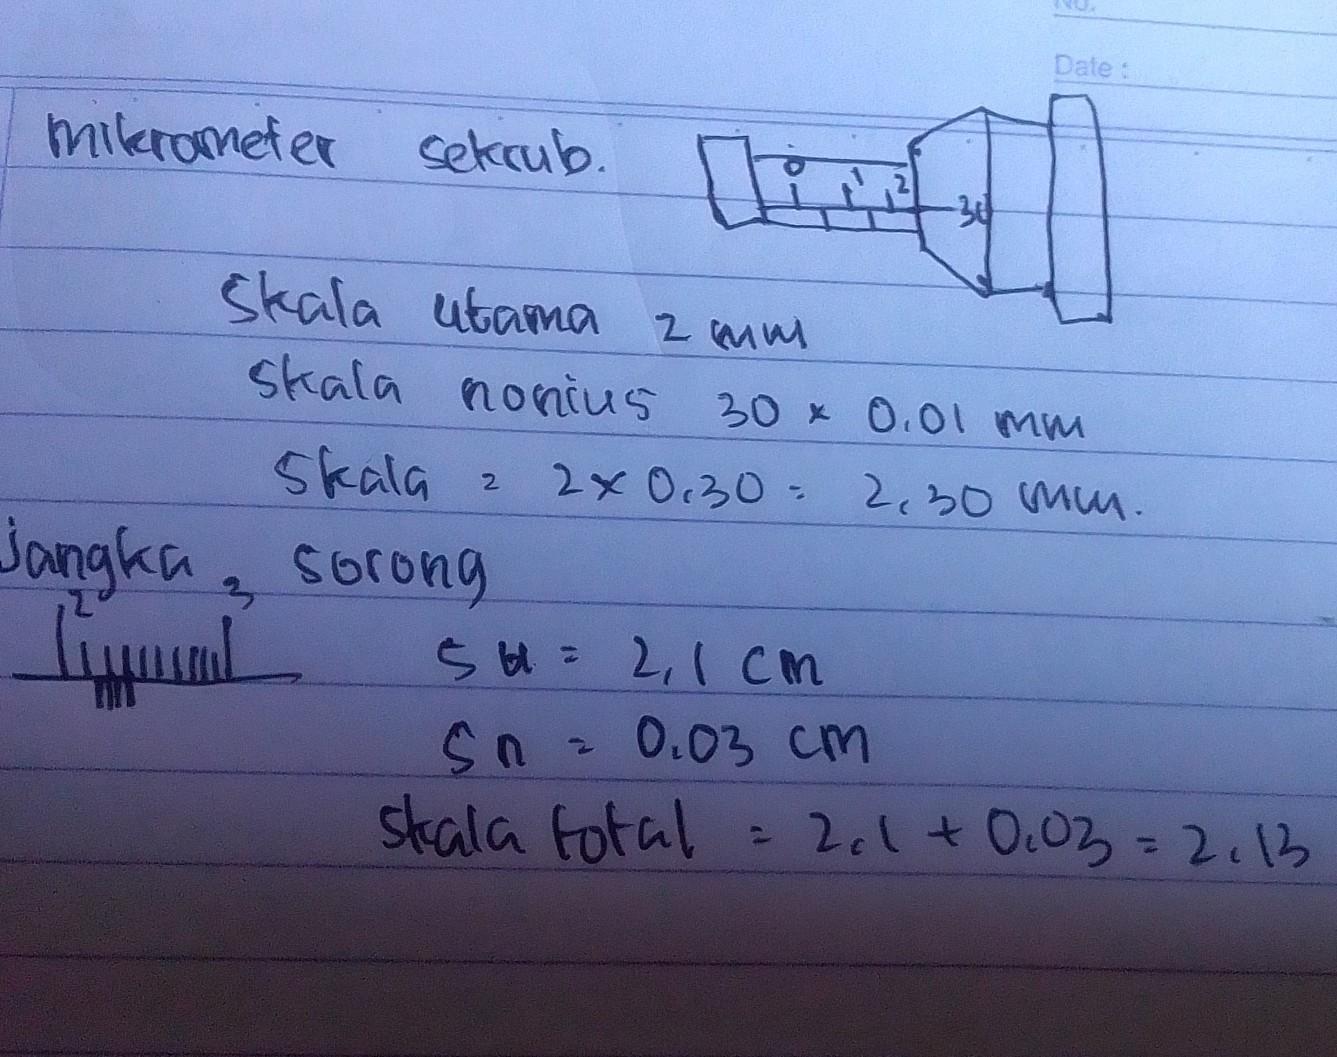 No.
Date :
mikrometer sekrub.
0 1 2
30
Skala utama 2 mm
Skala nonius 30 x 0.01 mm
Skala = 2 x 0.30 = 2,30 mm.
jangka sorong
2 3
Su = 2,1 cm
Sn = 0.03 cm
skala total = 2.1 + 0.03 = 2.13